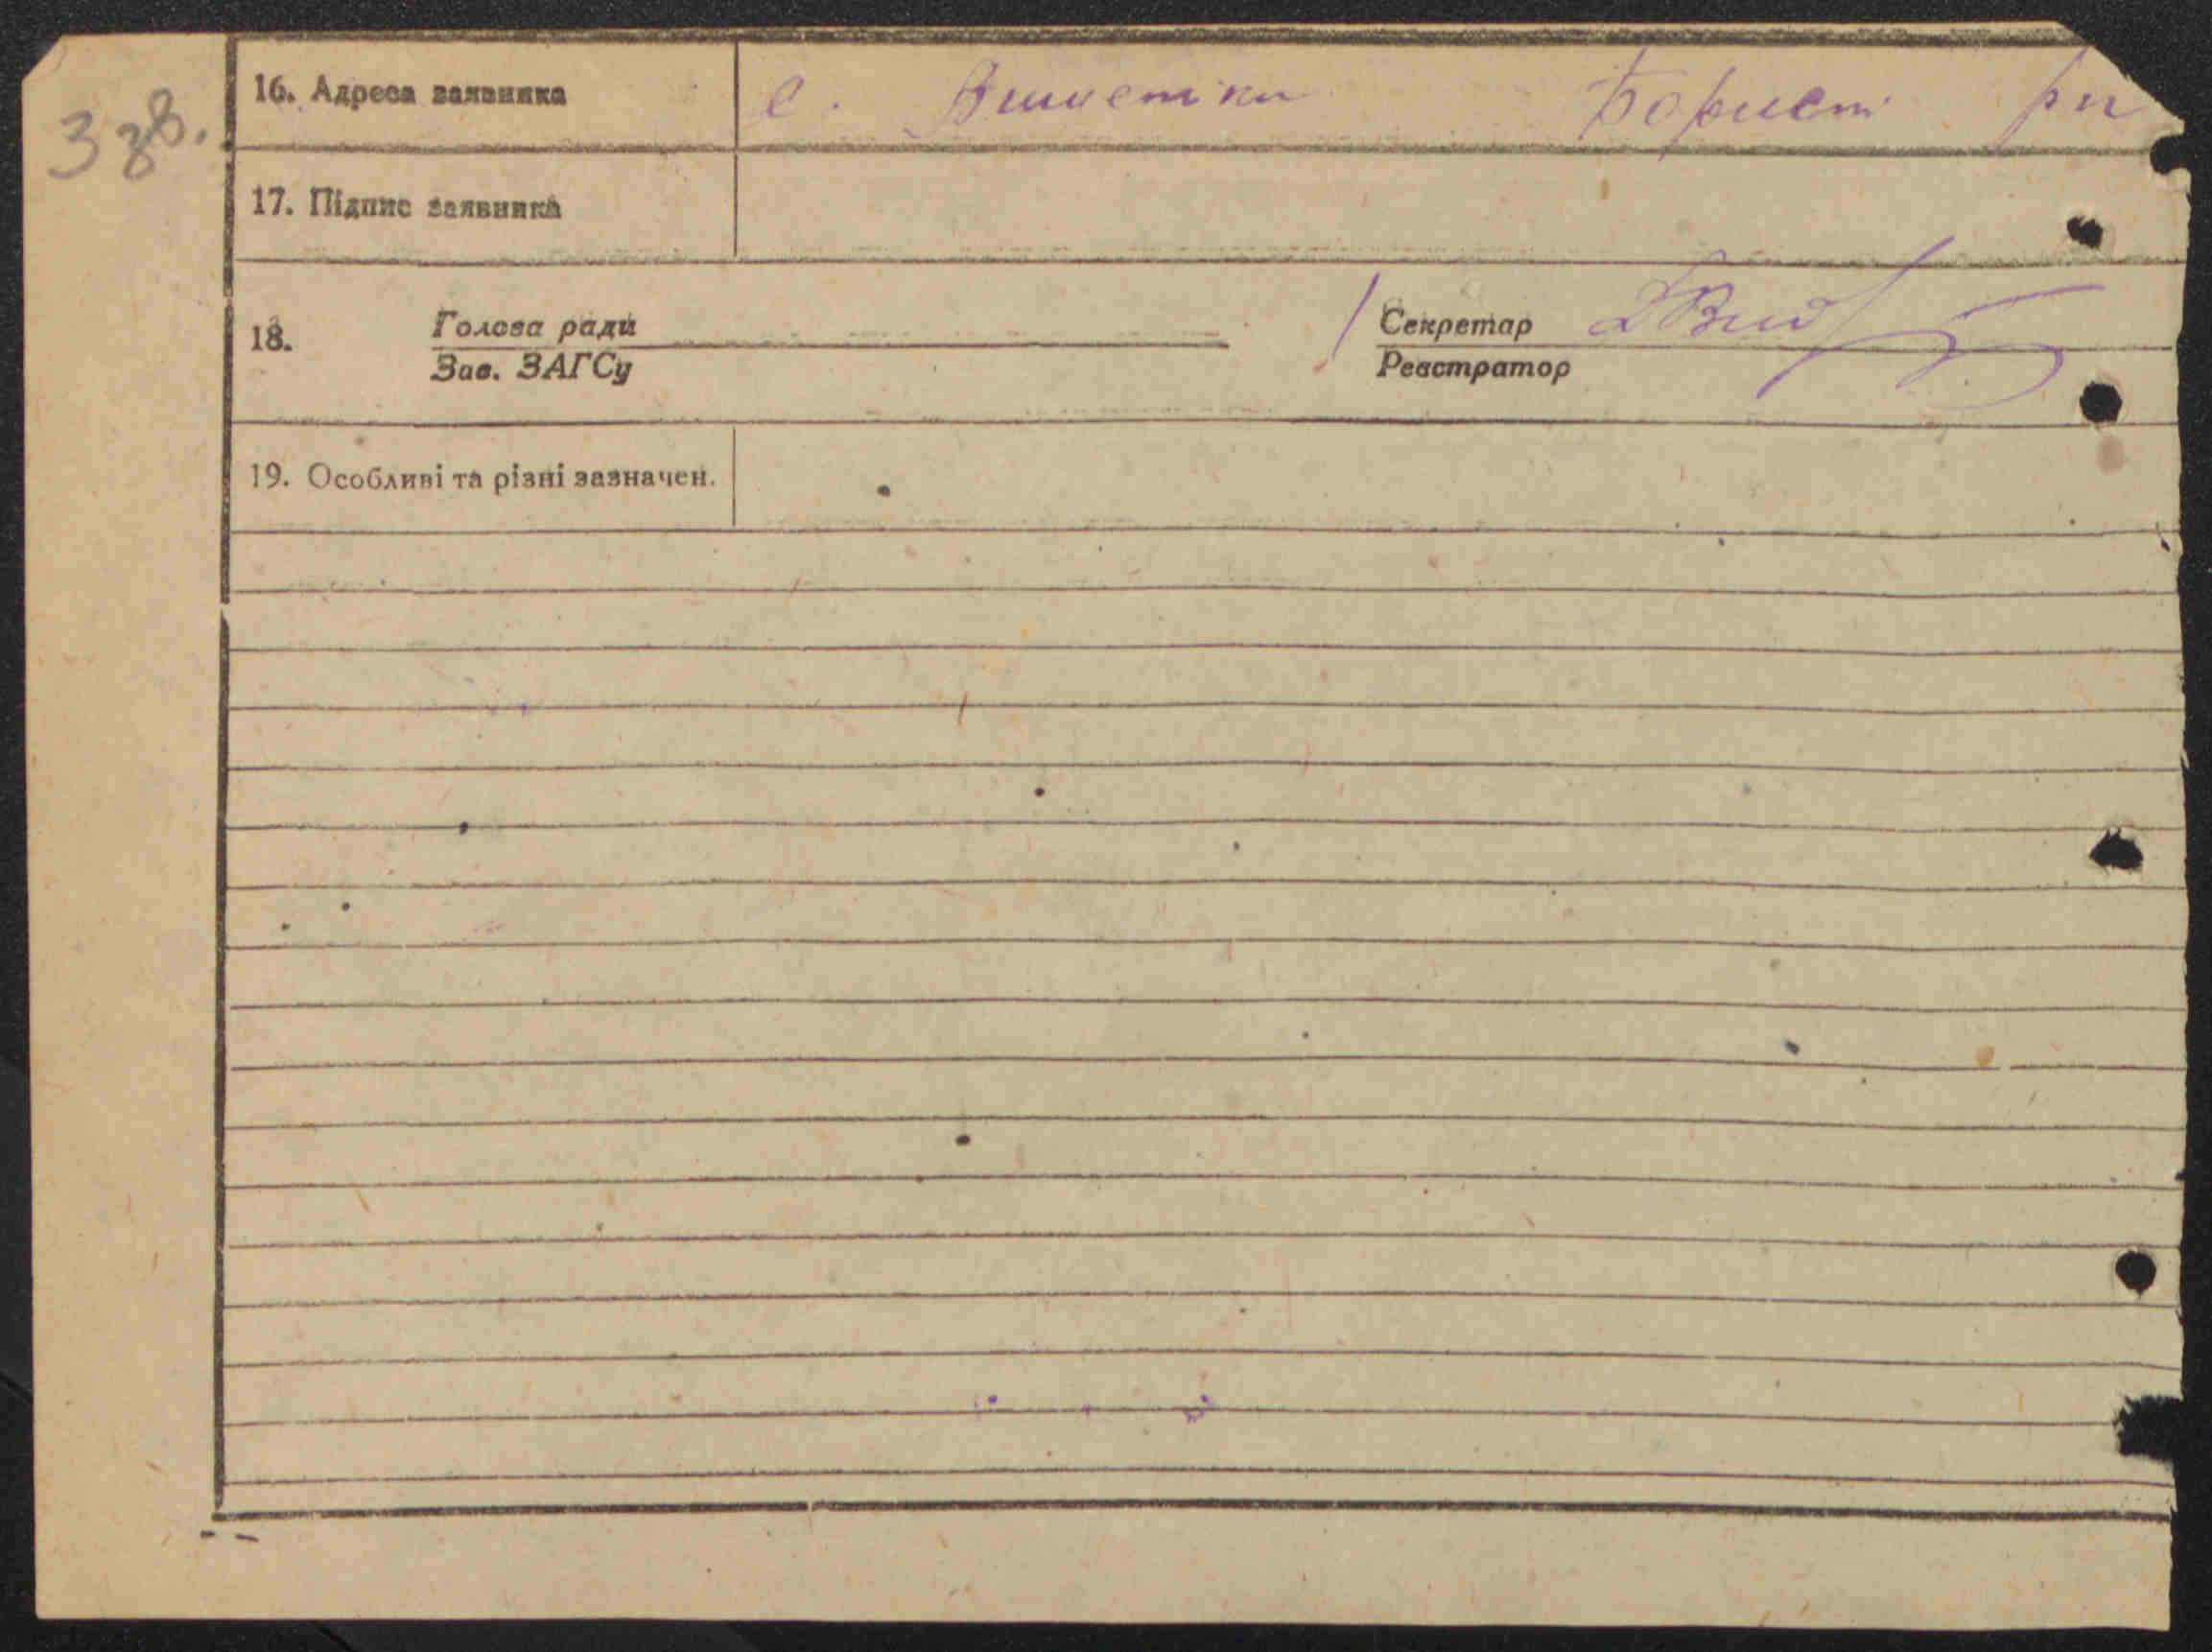 338.
16. Адреса заявника с. Вишеньки Борисп рн
17. Підпис заявника
18. Голова ради Секретар
Зав. ЗАГСу Реєстратор
19. Особливі та різні зазначен.